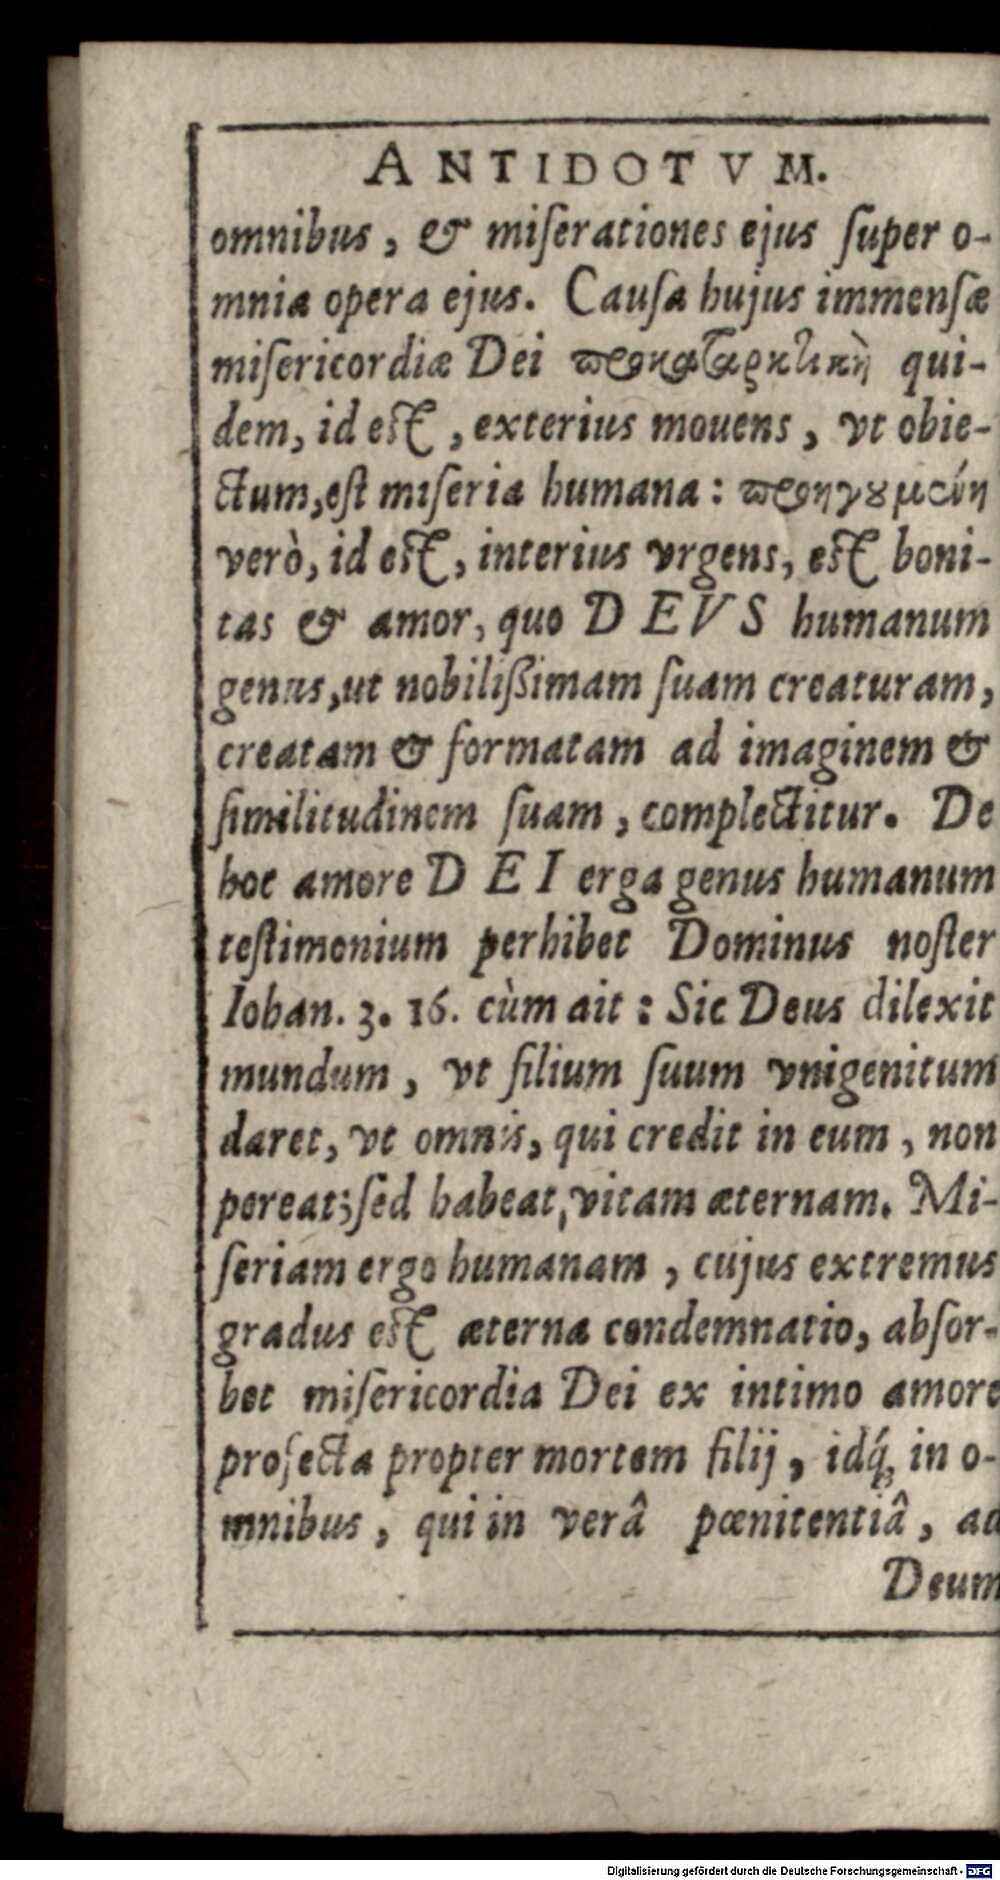 ANTIDOTVM.
omnibus, & miſerationes ejus ſuper o-
mnia opera ejus. Cauſa hujus immenſæ
miſericordiæ Dei προκαταρκτικὴ qui-
dem, id eſt, exterius mouens, vt obie-
ctum, eſt miſeria humana: προηγουμένη
verò, id eſt, interius vrgens, eſt boni-
tas & amor, quo DEVS humanum
genus, ut nobilißimam ſuam creaturam,
creatam & formatam ad imaginem &
ſimilitudinem ſuam, complectitur. De
hoc amore DEI erga genus humanum
teſtimonium perhibet Dominus noſter
Iohan. 3. 16. cùm ait: Sic Deus dilexit
mundum, vt filium ſuum vnigenitum
daret, vt omnis, qui credit in eum, non
pereat; ſed habeat, vitam æternam. Mi-
ſeriam ergo humanam, cujus extremus
gradus eſt æterna condemnatio, abſor-
bet miſericordia Dei ex intimo amore
profecta propter mortem filij, idq́; in o-
mnibus, qui in verâ pœnitentiâ, ad
Deum
Digitalisierung gefördert durch die Deutsche Forschungsgemeinschaft - DFG